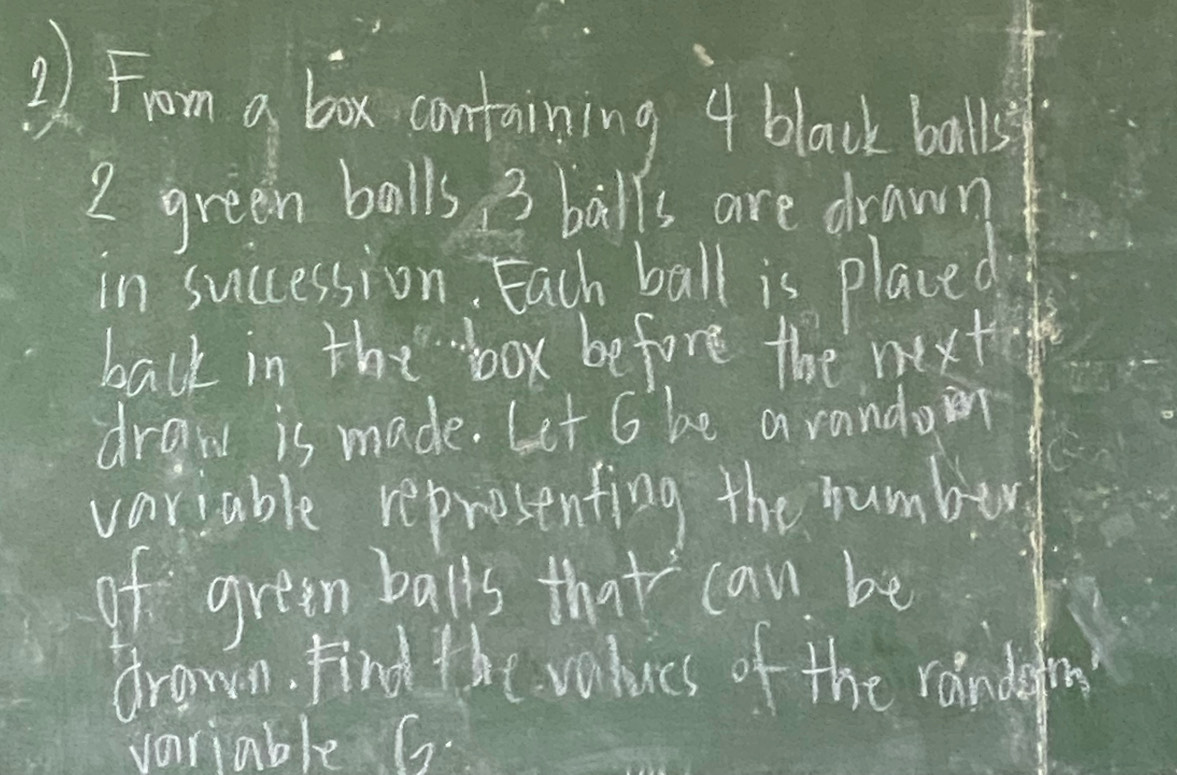 2) From a box containing 4 black balls
2 green balls, 3 balls are drawn
in succession. Each ball is placed
back in the box before the next
draw is made. Let G be a random
variable representing the number
of green balls that can be
drawn. Find the values of the random
variable G.